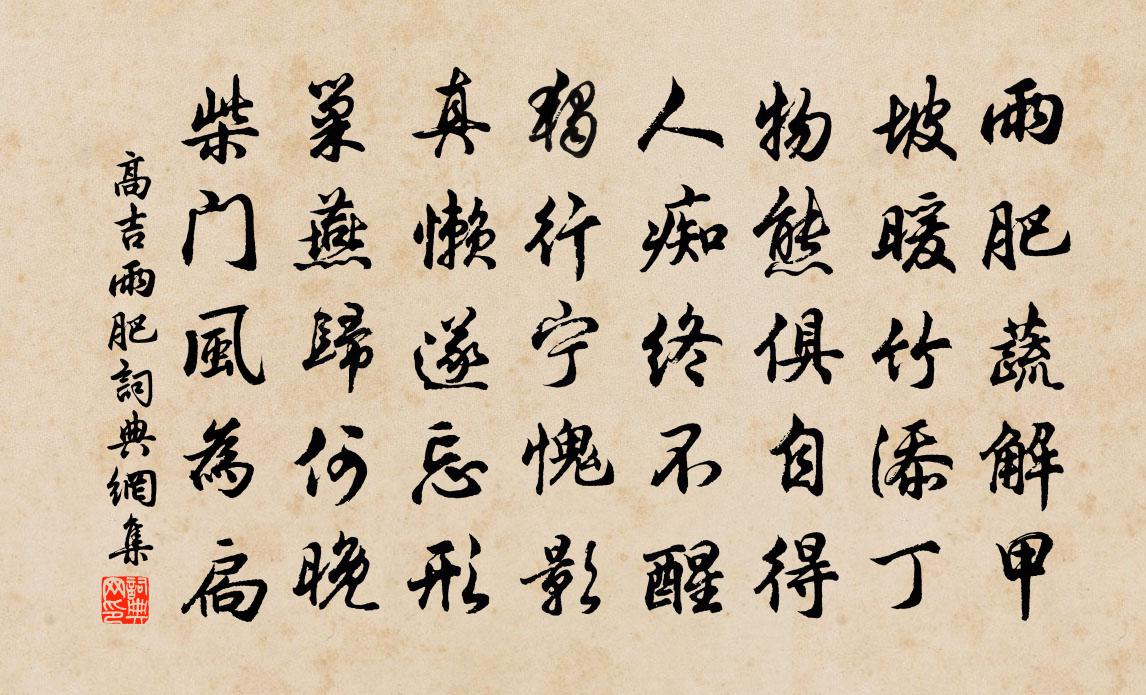 雨肥蔬解甲
坡暖竹添丁
物態俱自得
人痴终不醒
獨行宁愧影
真懒遂忘形
巢燕歸何晚
柴门風為扃
高吉雨肥詞典網集
詞典网印